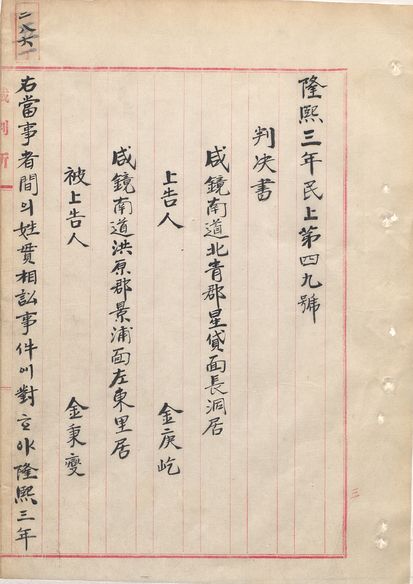 隆熙三年民上第四九號
判決書
咸鏡南道北青郡星貸面長洞居
上告人　金庚屹
咸鏡南道洪原郡景浦面左東里居
被上告人　金秉燮
右當事者間의姓貫相訟事件이對호야隆熙三年
二八六
裁判所
三